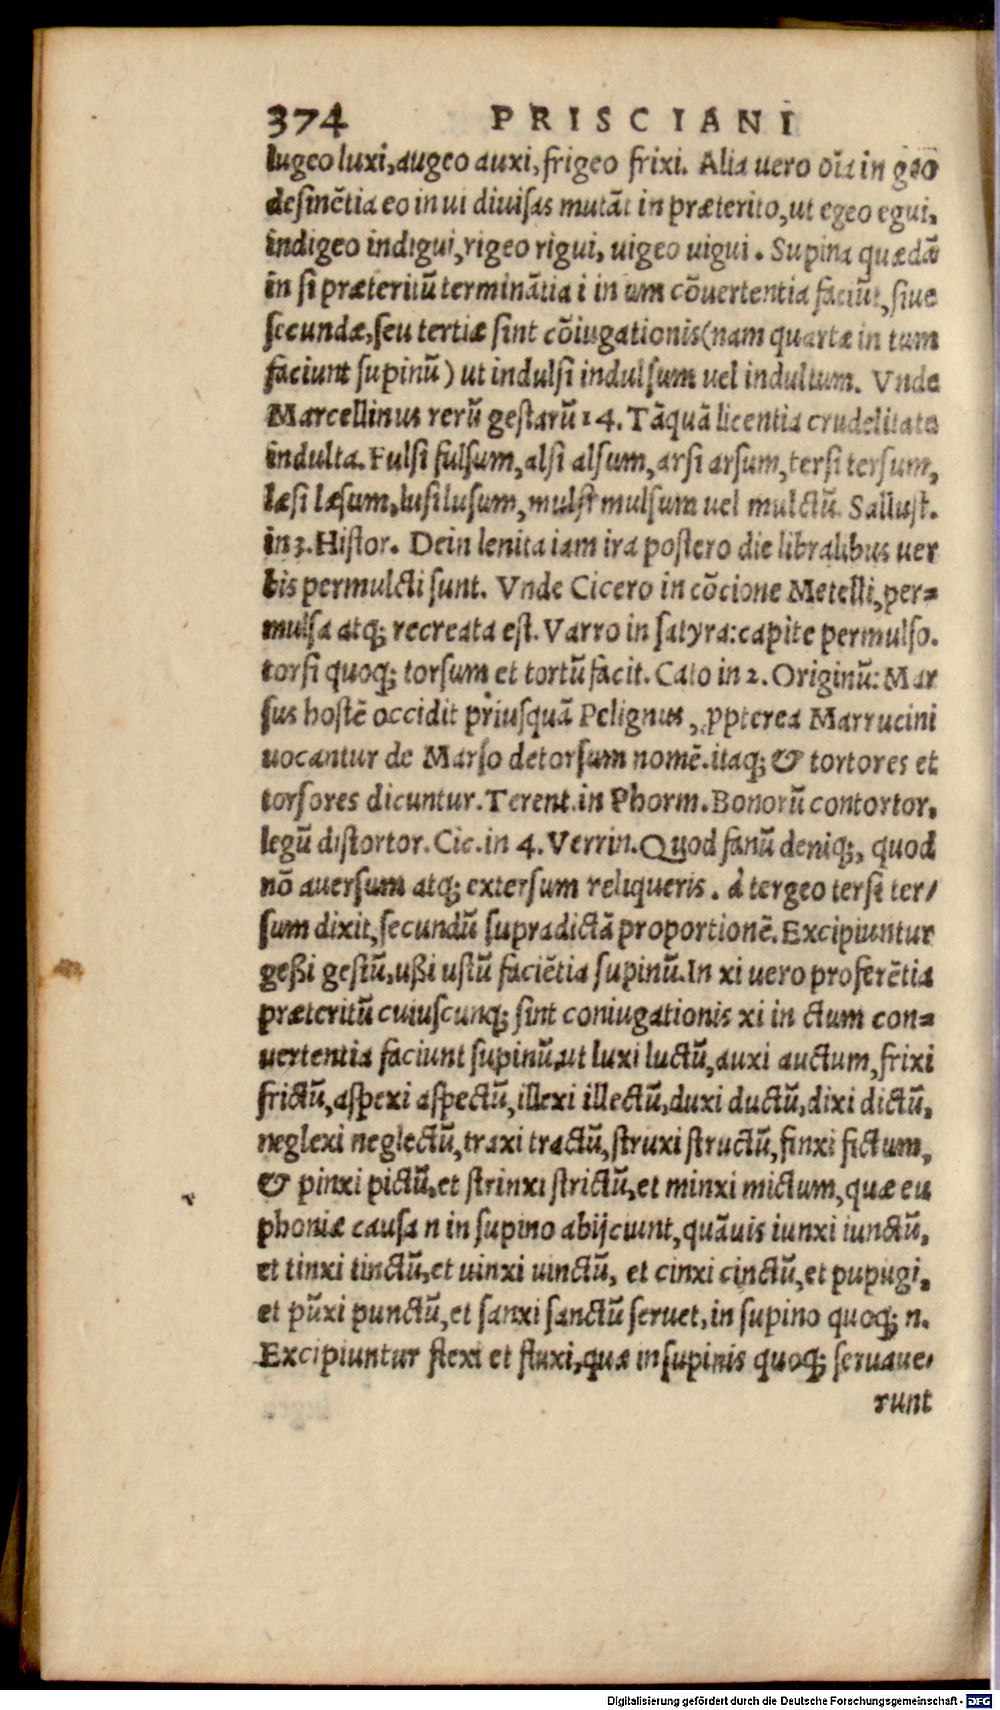 374 PRISCIANI
lugeo luxi, augeo auxi, frigeo frixi. Alia uero oĩa in geo
desinẽtia eo in ui diuisas mutãt in præterito, ut egeo egui,
indigeo indigui, rigeo rigui, uigeo uigui. Supina quædã
in si præteritũ terminãtia i in um cõuertentia faciũt, siue
secundæ, seu tertiæ sint cõiugationis (nam quartæ in tum
faciunt supinũ) ut indulsi indulsum uel indultum. Vnde
Marcellinus rerũ gestarũ 14. Tãquã licentia crudelitate
indulta. Fulsi fulsum, alsi alsum, arsi arsum, tersi tersum,
læsi læsum, lusi lusum, mulsi mulsum uel mulctũ. Sallust.
in 3. Histor. Dein lenita iam ira postero die libralibus uer
bis permulcti sunt. Vnde Cicero in cõcione Metelli, per=
mulsa atq; recreata est. Varro in satyra: capite permulso.
torsi quoq; torsum et tortũ facit. Cato in 2. Originũ: Mar
sus hostẽ occidit priusquã Pelignus, ꝓpterea Marrucini
uocantur de Marso detorsum nomẽ. itaq; & tortores et
torsores dicuntur. Terent. in Phorm. Bonorũ contortor,
legũ distortor. Cic. in 4. Verrin. Quod fanũ deniq;, quod
nõ auersum atq; extersum reliqueris. A tergeo tersi ter/
sum dixit, secundũ supradictã proportionẽ. Excipiuntur
geßi gestũ, ußi ustũ faciẽtia supinũ. In xi uero proferẽtia
præteritũ cuiuscunq; sint coniugationis xi in ctum con=
uertentia faciunt supinũ, ut luxi luctũ, auxi auctum, frixi
frictũ, aspexi aspectũ, illexi illectũ, duxi ductũ, dixi dictũ,
neglexi neglectũ, traxi tractũ, struxi structũ, finxi fictum,
& pinxi pictũ, et strinxi strictũ, et minxi mictum, quæ eu
phoniæ causa n in supino abijciunt, quãuis iunxi iunctũ,
et tinxi tinctũ, et uinxi uinctũ, et cinxi cinctũ, et pupugi,
et pũxi punctũ, et sanxi sanctũ seruet, in supino quoq; n.
Excipiuntur flexi et fluxi, quæ in supinis quoq; seruaue,
runt
Digitalisierung gefördert durch die Deutsche Forschungsgemeinschaft - DFG